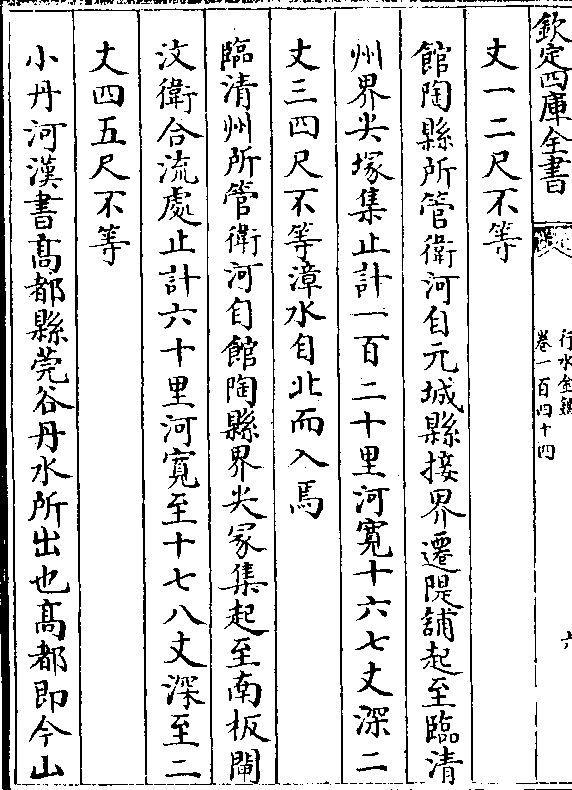 欽定四庫全書
行水金鑑
卷一百四十四
六
丈一二尺不等
館陶縣所管衛河自元城縣接界遷隄舖起至臨清
州界尖塚集止計一百二十里河寛十六七丈深二
丈三四尺不等漳水自北而入焉
臨清州所管衛河自館陶縣界尖冡集起至南板閘
汶衛合流處止計六十里河寛至十七八丈深至二
丈四五尺不等
小丹河漢書髙都縣莞谷丹水所出也髙都即今山